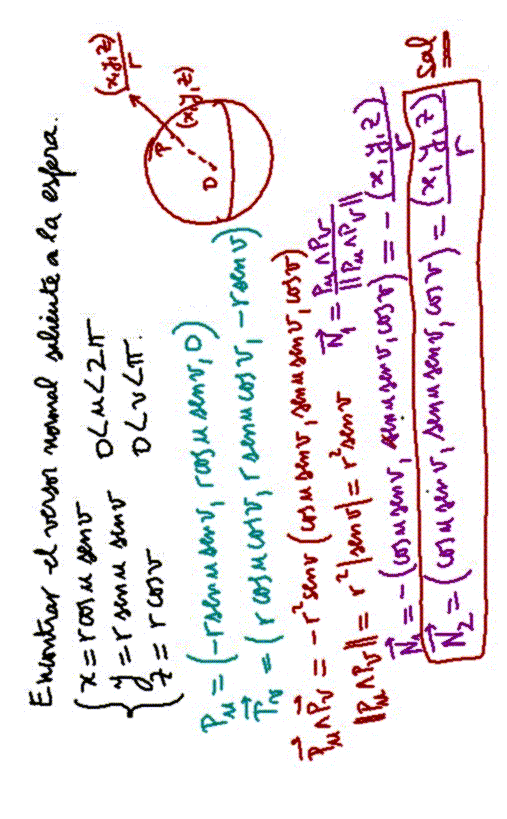 Encontrar el versor normal saliente a la esfera.
x = r cos u sen v 0<u<2π
y = r sen u sen v 0<v<π.
z = r cos v
(x,y,z)/r
P (x,y,z)
O
Pu = (-r sen u sen v, r cos u sen v, 0)
Pv = (r cos u cos v, r sen u cos v, -r sen v)
Pu ∧ Pv = -r² sen v (cos u sen v, sen u sen v, cos v)
||Pu ∧ Pv|| = r² |sen v| = r² sen v N₁ = Pu ∧ Pv / ||Pu ∧ Pv||
N₁ = -(cos u sen v, sen u sen v, cos v) = -(x,y,z)/r
N₂ = (cos u sen v, sen u sen v, cos v) = (x,y,z)/r sal